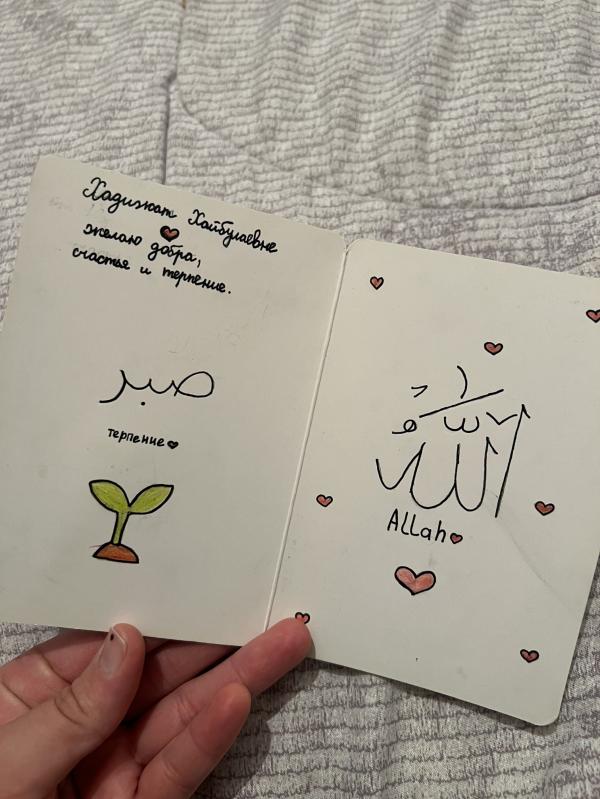 Хадижат Хайбулаевне
желаю добра,
счастья и терпение.
صبر
терпение
الله
Allah